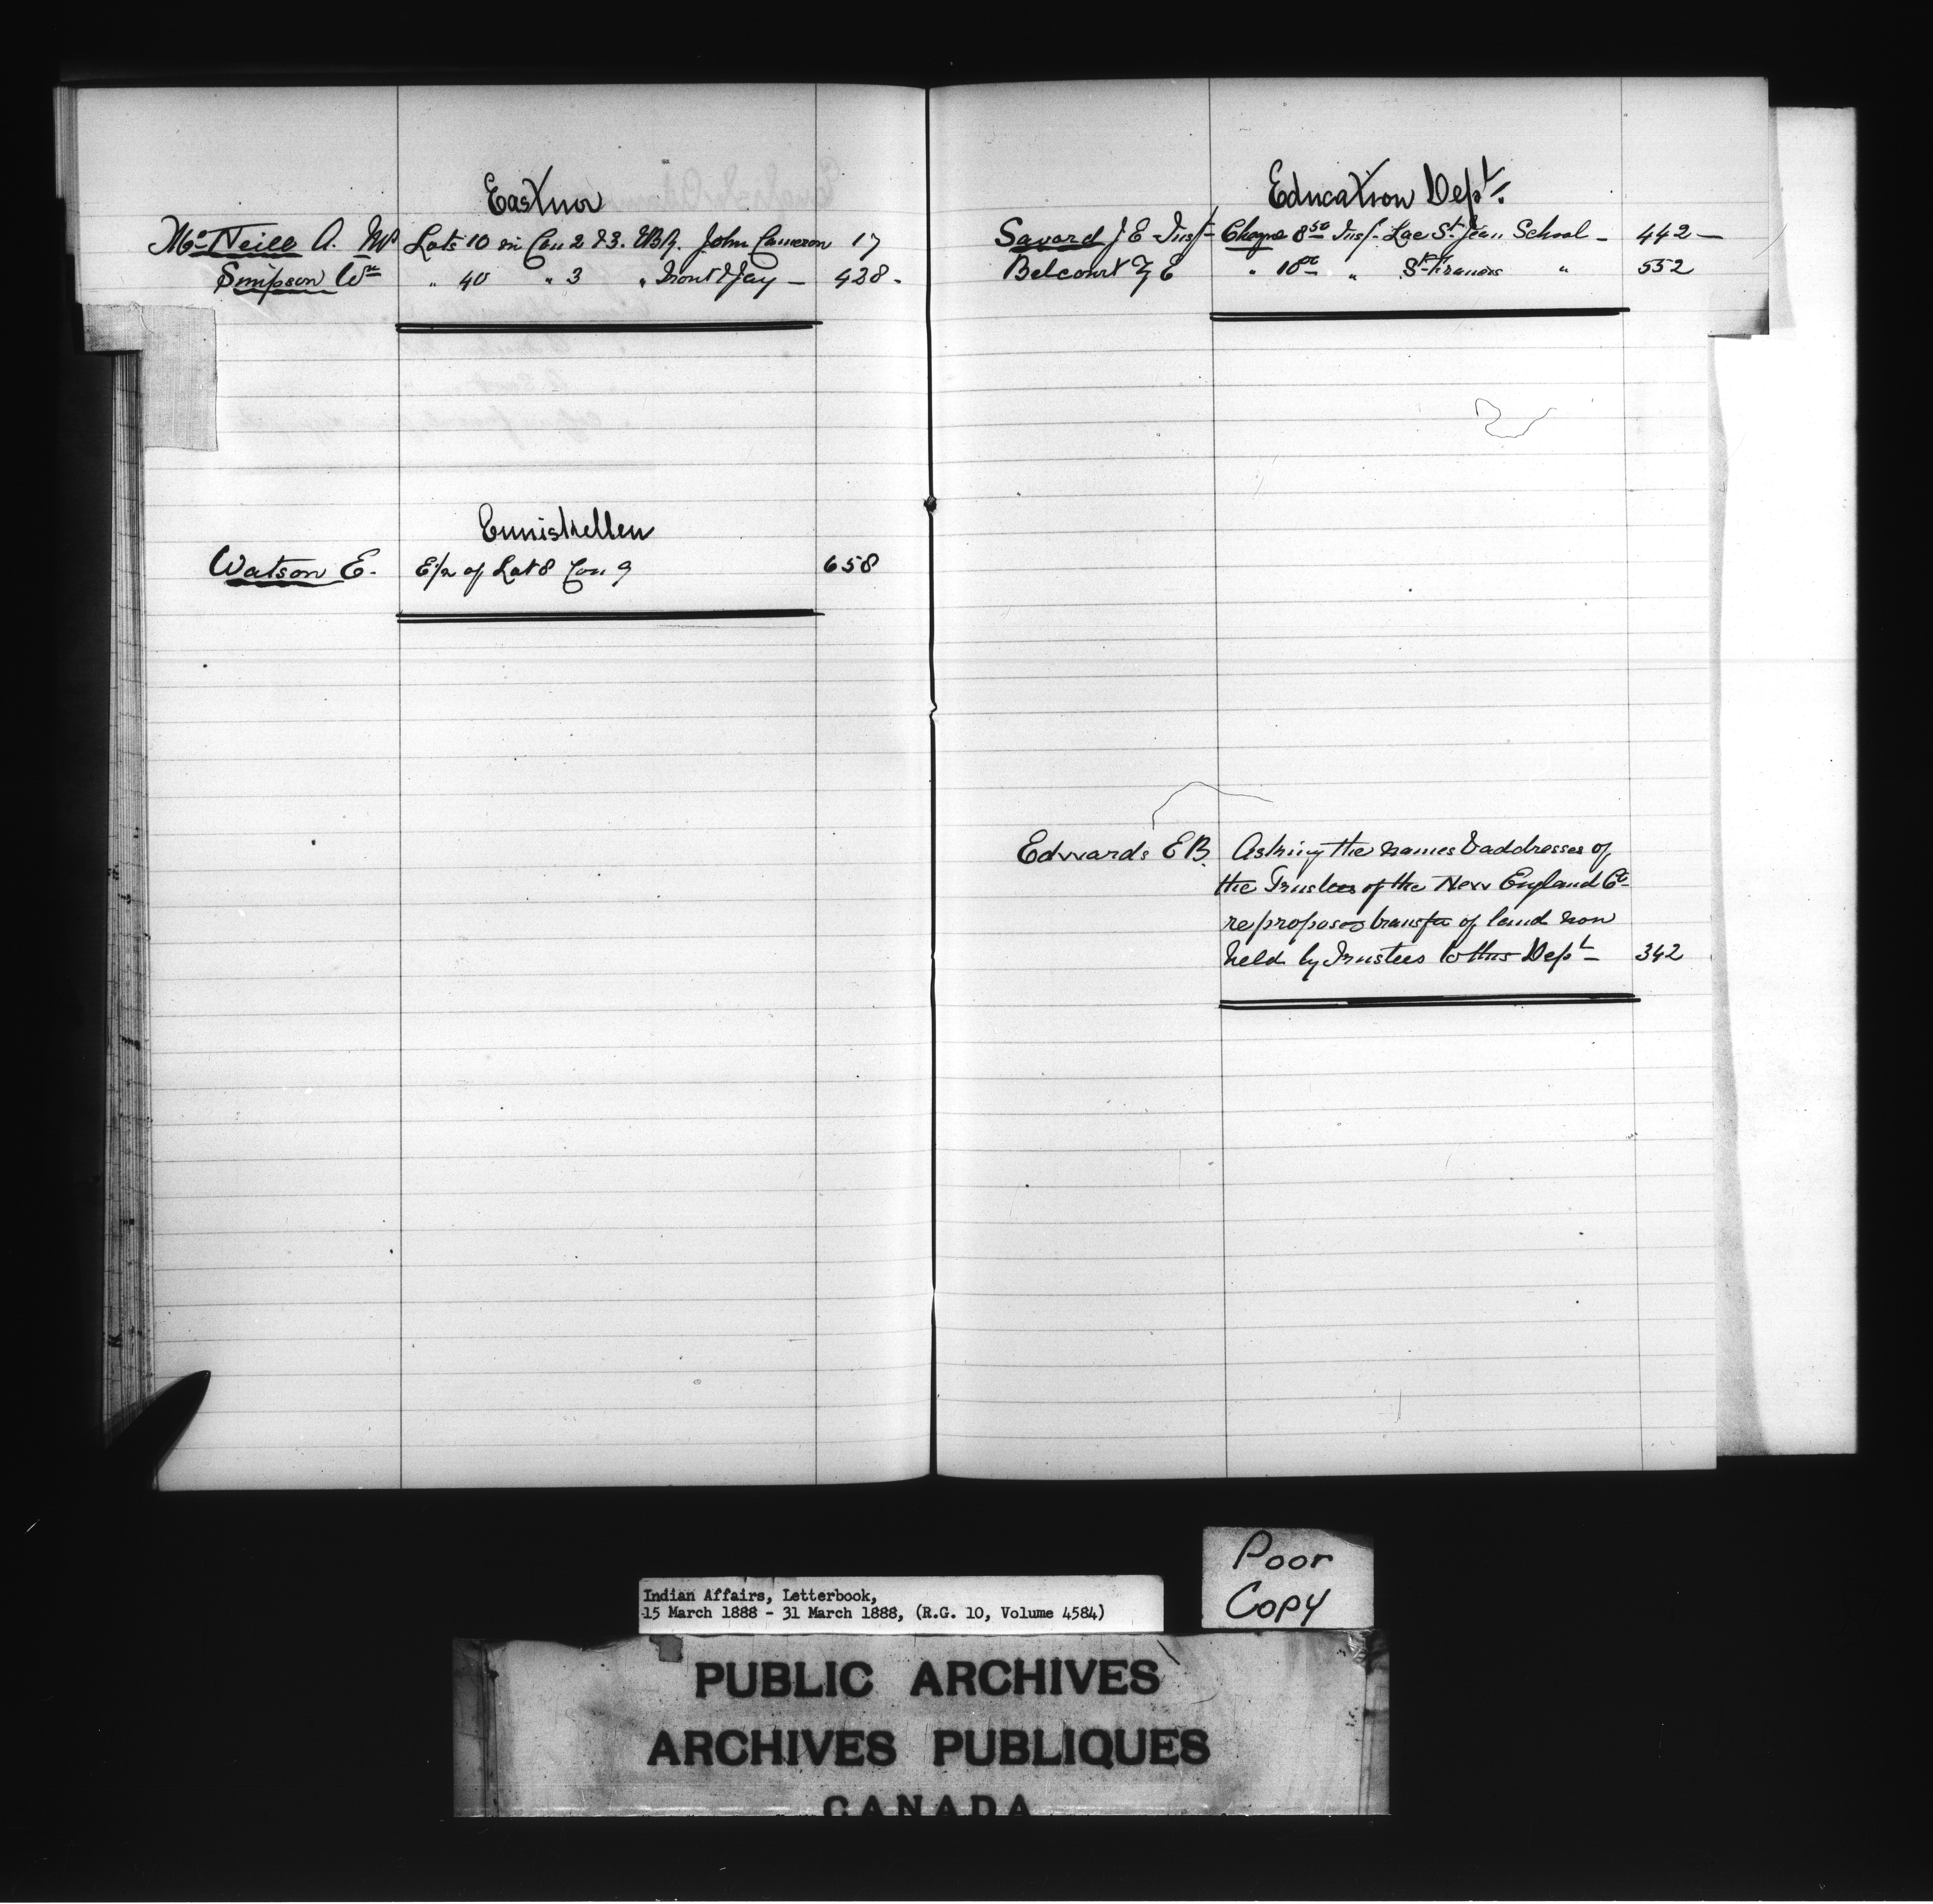 Eastnor
McNeill A. MP Lots 10 in Con 2 & 3. EBR. John Cameron 17
Simpson Wm " 40 " 3 " 428 -
Enniskillen
Watson E. E/2 of Lot 8 Con 9 658
Education Dept.
Savard J E Insp Cheque 8 50 Insp. Lac St Jean School - 442 -
Belcourt E " 10 00 " St Francis " 552
Edwards E B. Asking the names & addresses of
the Trustees of the New England Co
re proposed transfer of land now
held by Trustees to this Dept - 342
Poor
Copy
Indian Affairs, Letterbook,
15 March 1888 - 31 March 1888, (R.G. 10, Volume 4584)
PUBLIC ARCHIVES
ARCHIVES PUBLIQUES
CANADA